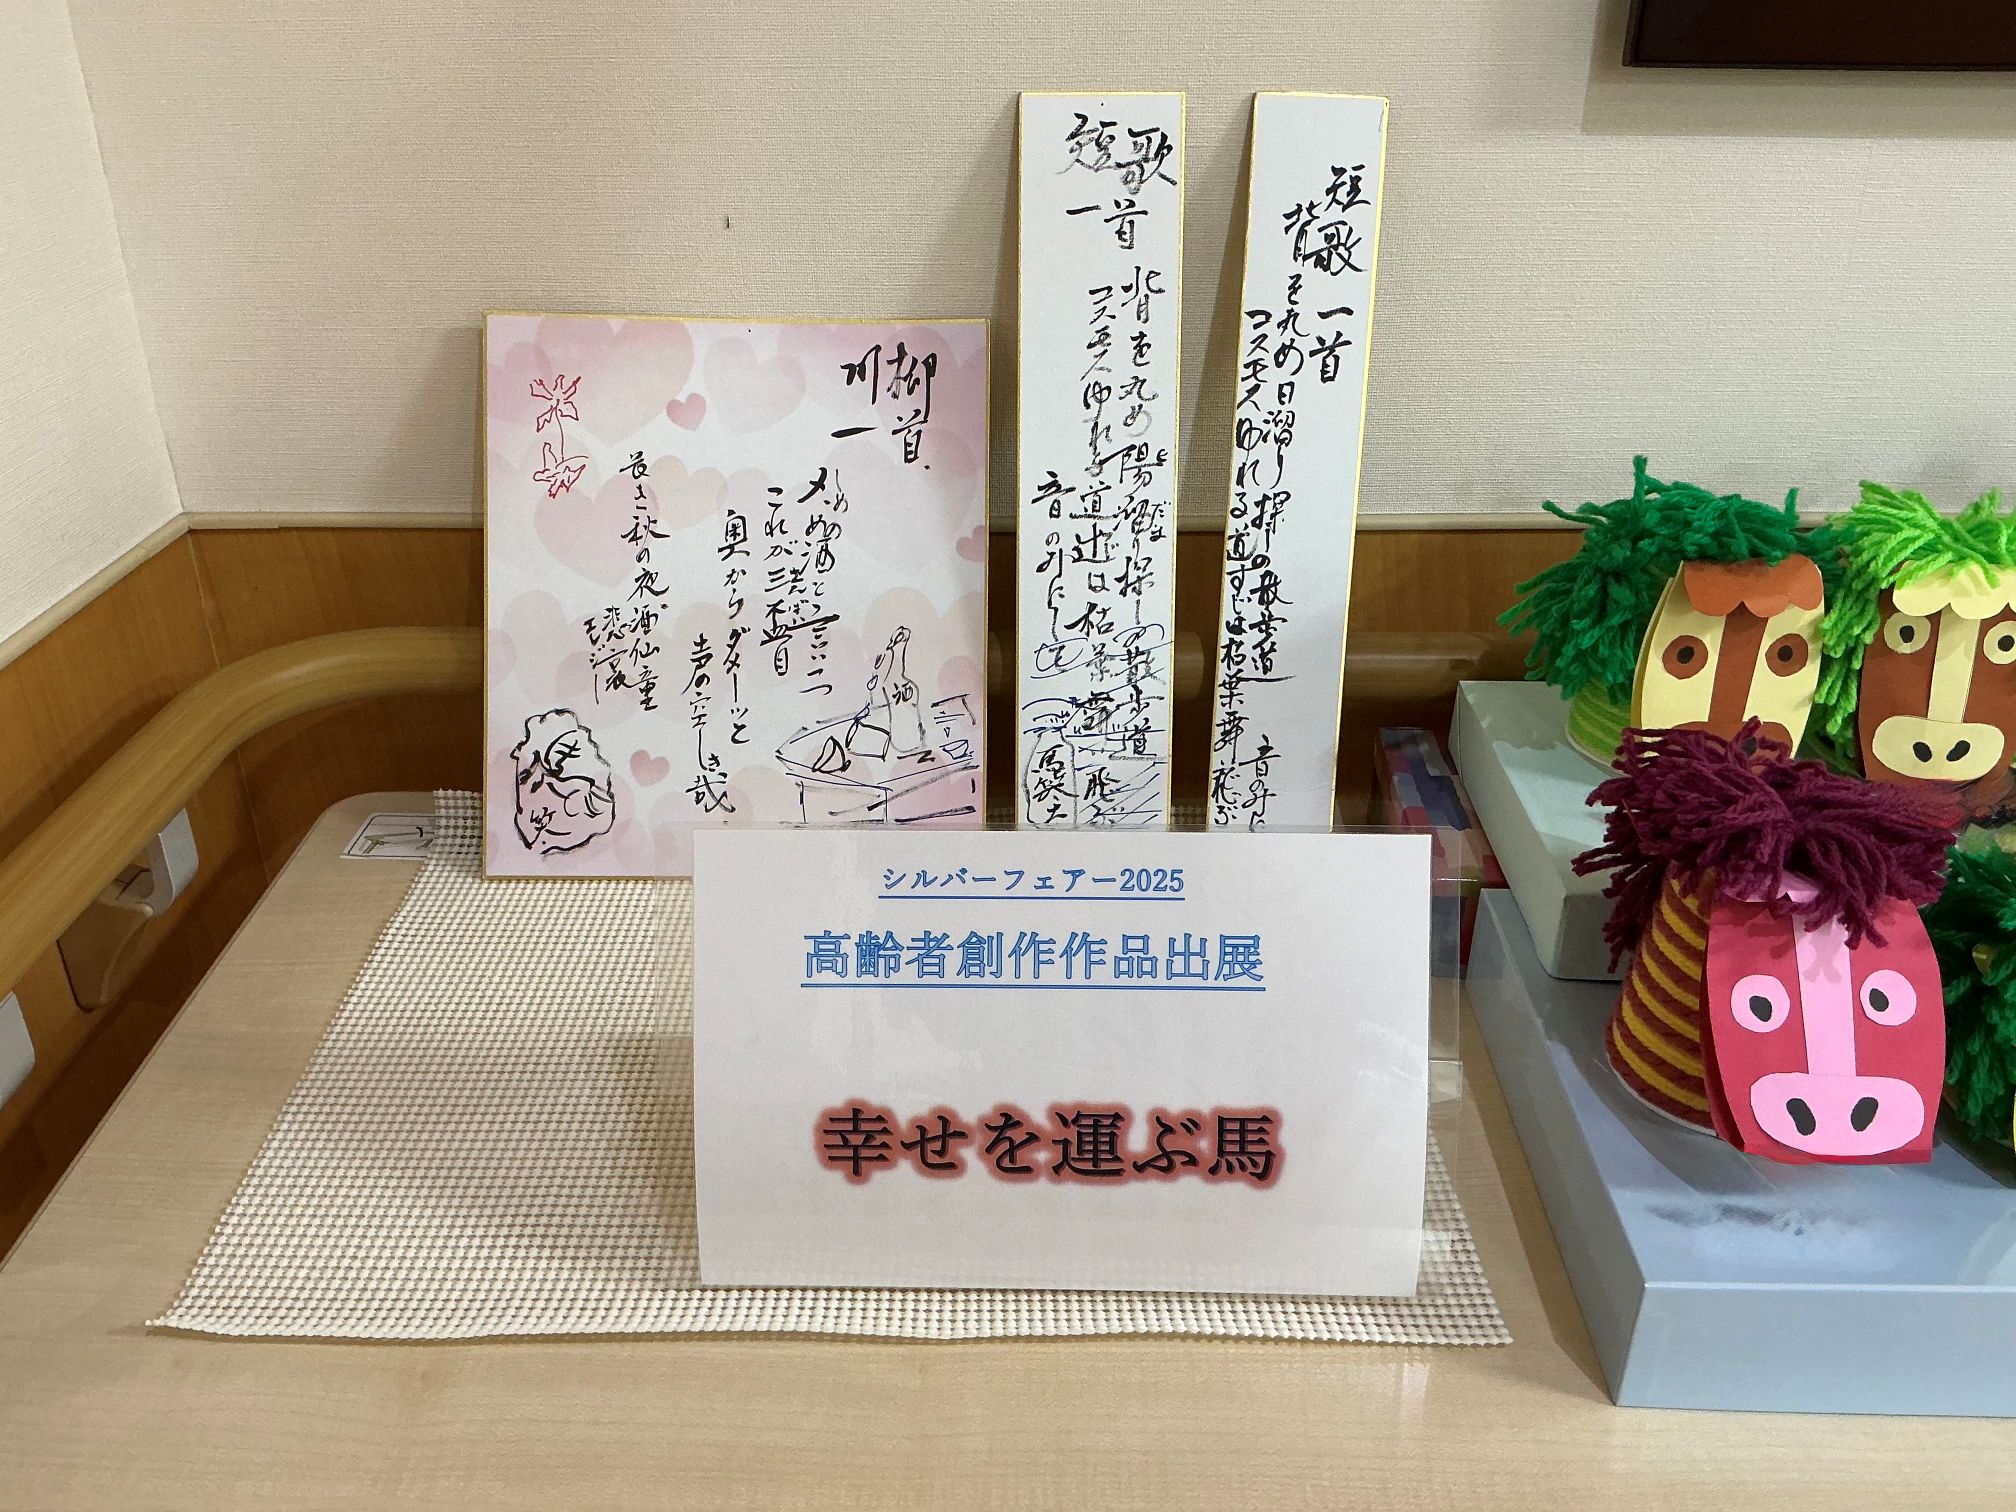 川柳
一首
〆め酒と言いつつ
しめ
これが三盃目
さんばい
奥からダメーッと
声の空しき哉
長き秋の夜
酒仙童
酒
笑
短歌
一首
背を丸め陽溜り探しの散歩道
コスモスゆれる道辻は枯葉舞飛ぶ
音のみにし
馬笑
短歌一首
背を丸め日溜り探しの散歩道
コスモスゆれる道すじは枯葉舞飛ぶ
音のみに
シルバーフェアー2025
高齢者創作作品出展
幸せを運ぶ馬